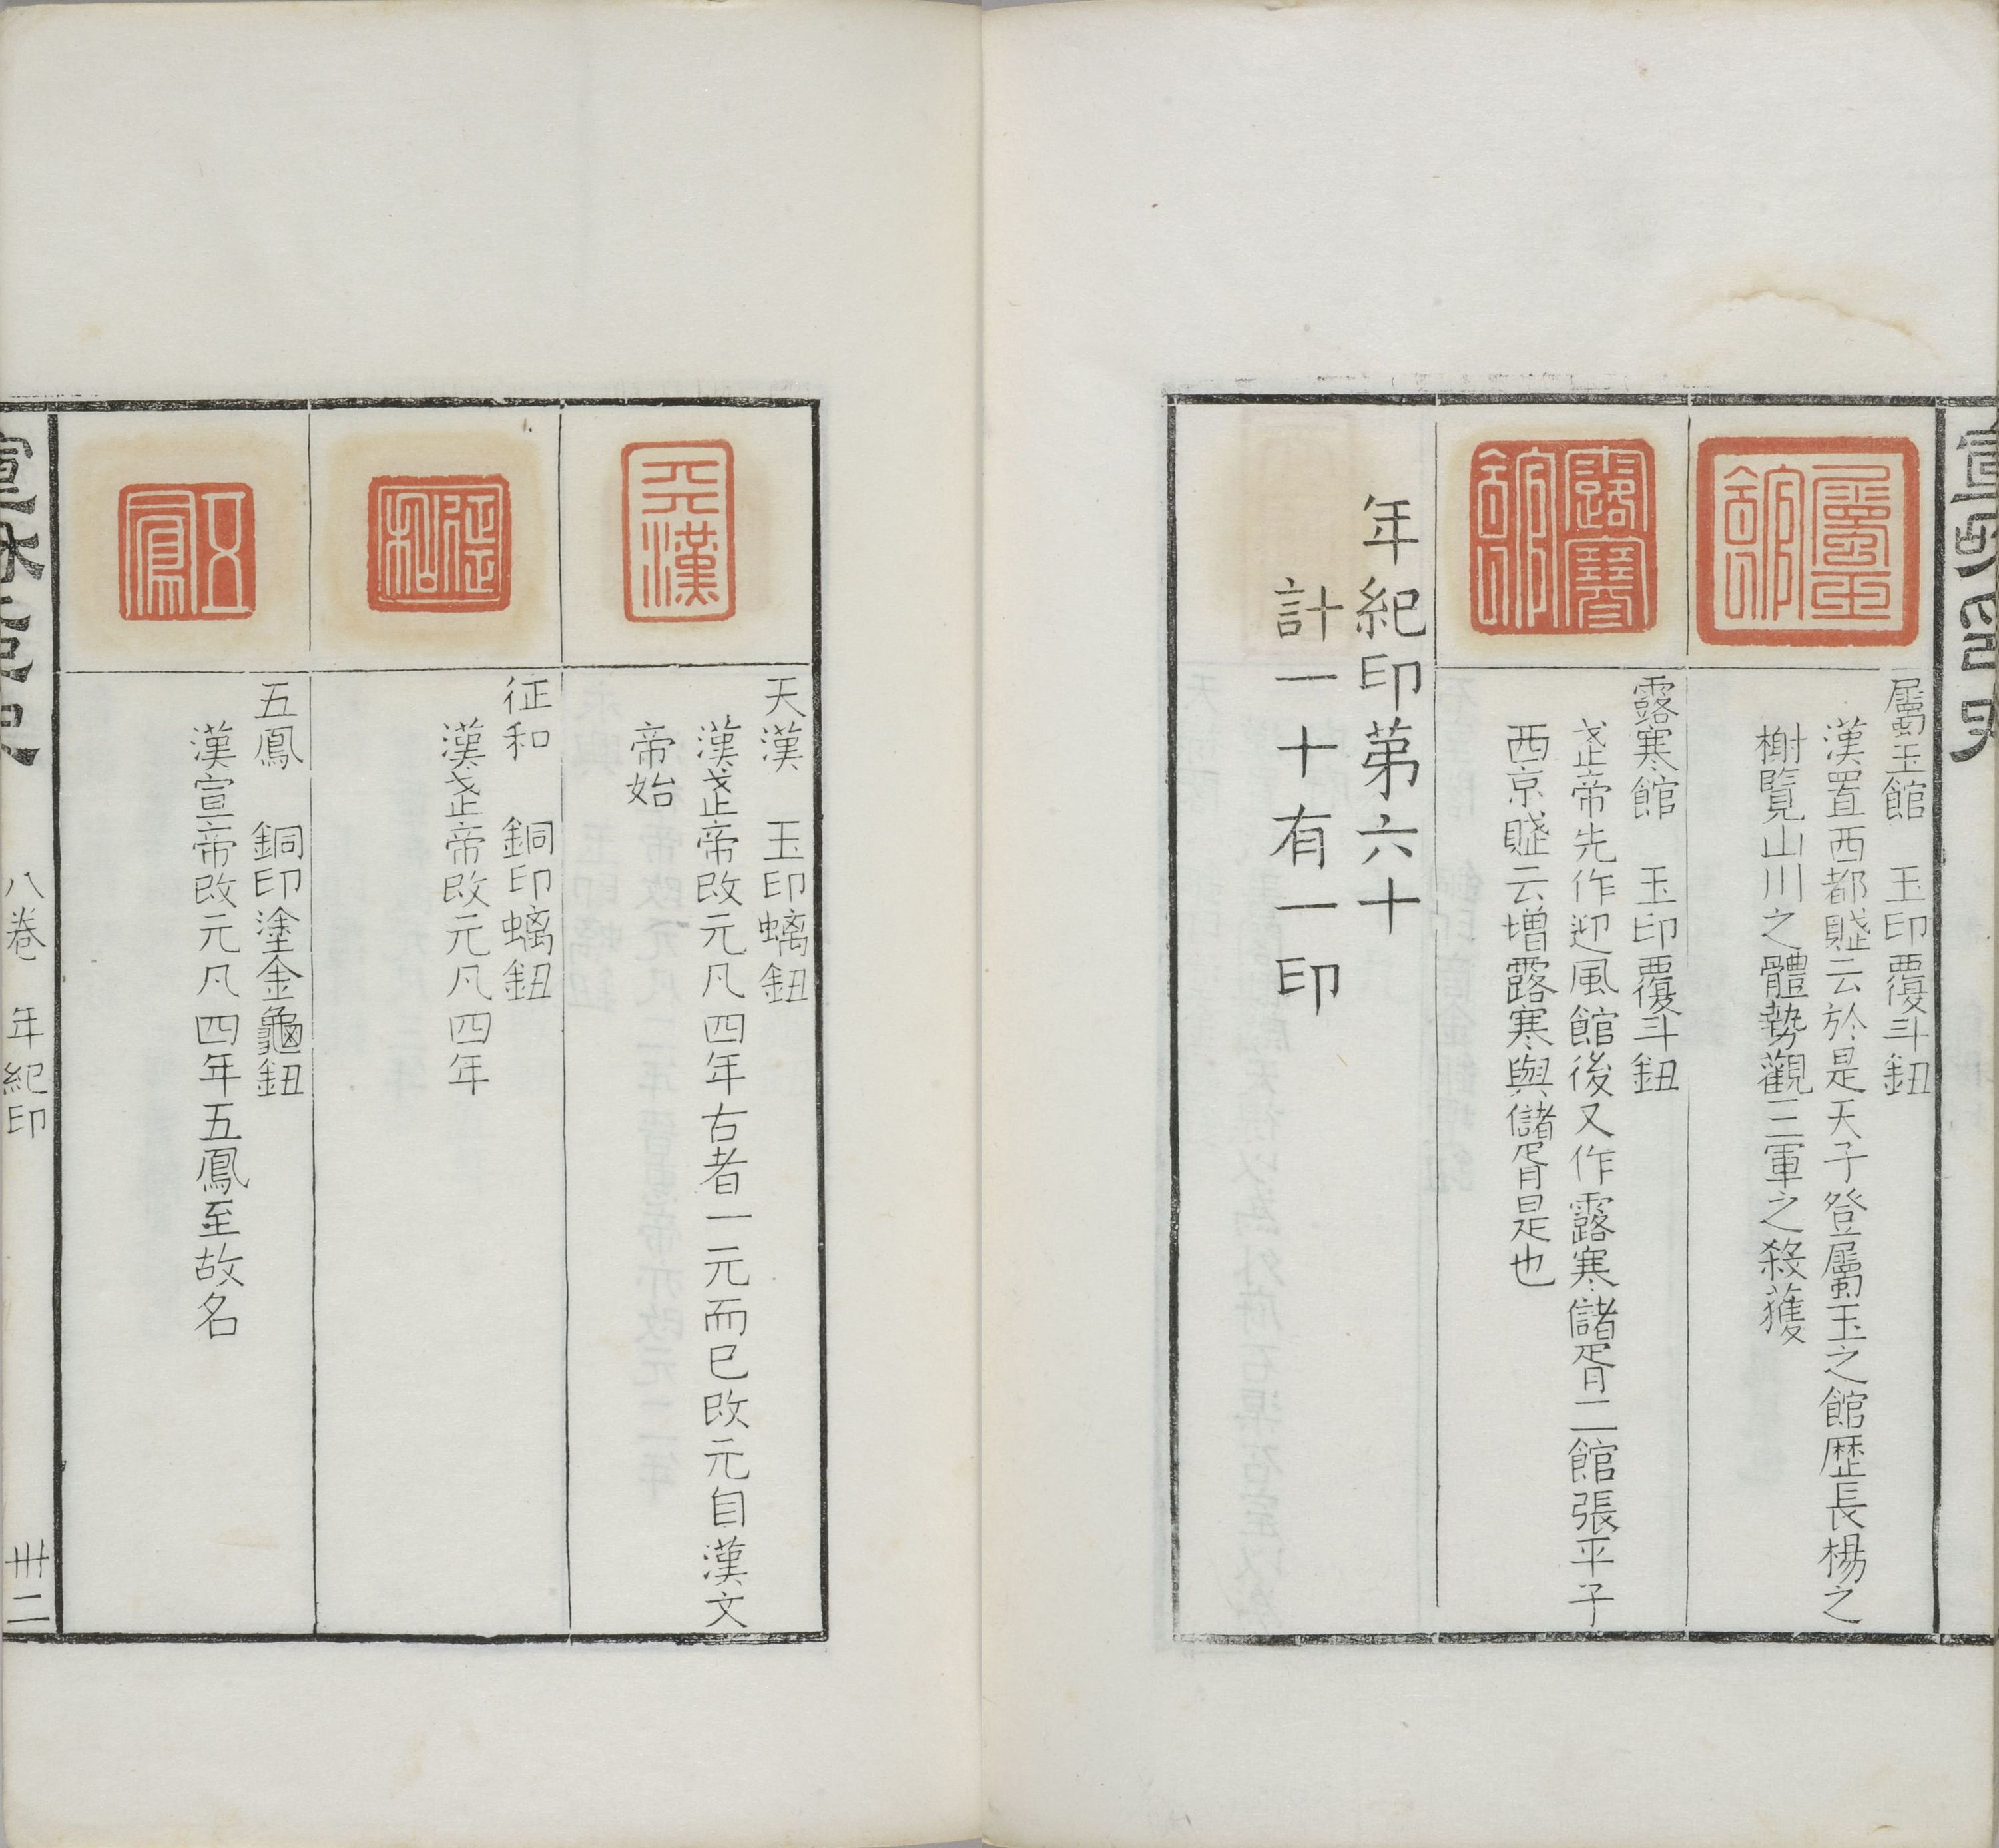 屬玉館
屬玉館　玉印覆斗鈕
漢置西都賦云於是天子登屬玉之館歷長楊之
榭覽山川之體勢觀三軍之殺獲
露寒館
露寒館　玉印覆斗鈕
武帝先作迎風館後又作露寒儲胥二館張平子
西京賦云增露寒與儲胥是也
年紀印第六十
計一十有一印
天漢
天漢　玉印螭鈕
漢武帝改元凡四年古者一元而已改元自漢文
帝始
征和
征和　銅印螭鈕
漢武帝改元凡四年
五鳳
五鳳　銅印塗金龜鈕
漢宣帝改元凡四年五鳳至故名
八卷　年紀印
卅二